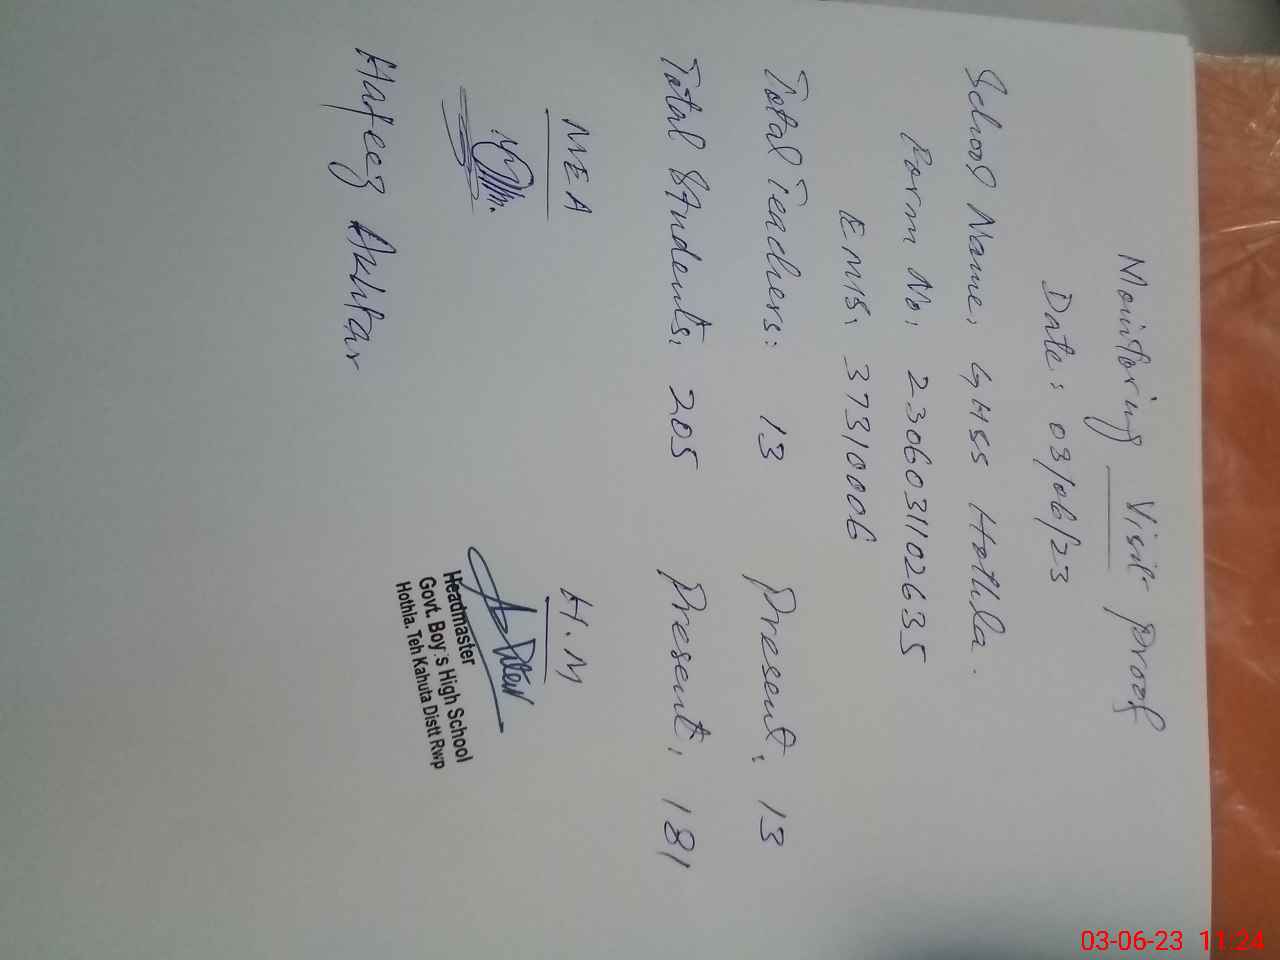 Monitoring Visit Proof
Date: 03/06/23
School Name: GHSS Hothla.
Form No: 230603102635
EMIS: 37310006
Total Teachers: 13 Present: 13
Total Students: 205 Present: 181
MEA H.M
Headmaster
Govt. Boy's High School
Hothla. Teh Kahuta Distt Rwp
Hafeez Akhtar
03-06-23 11:24